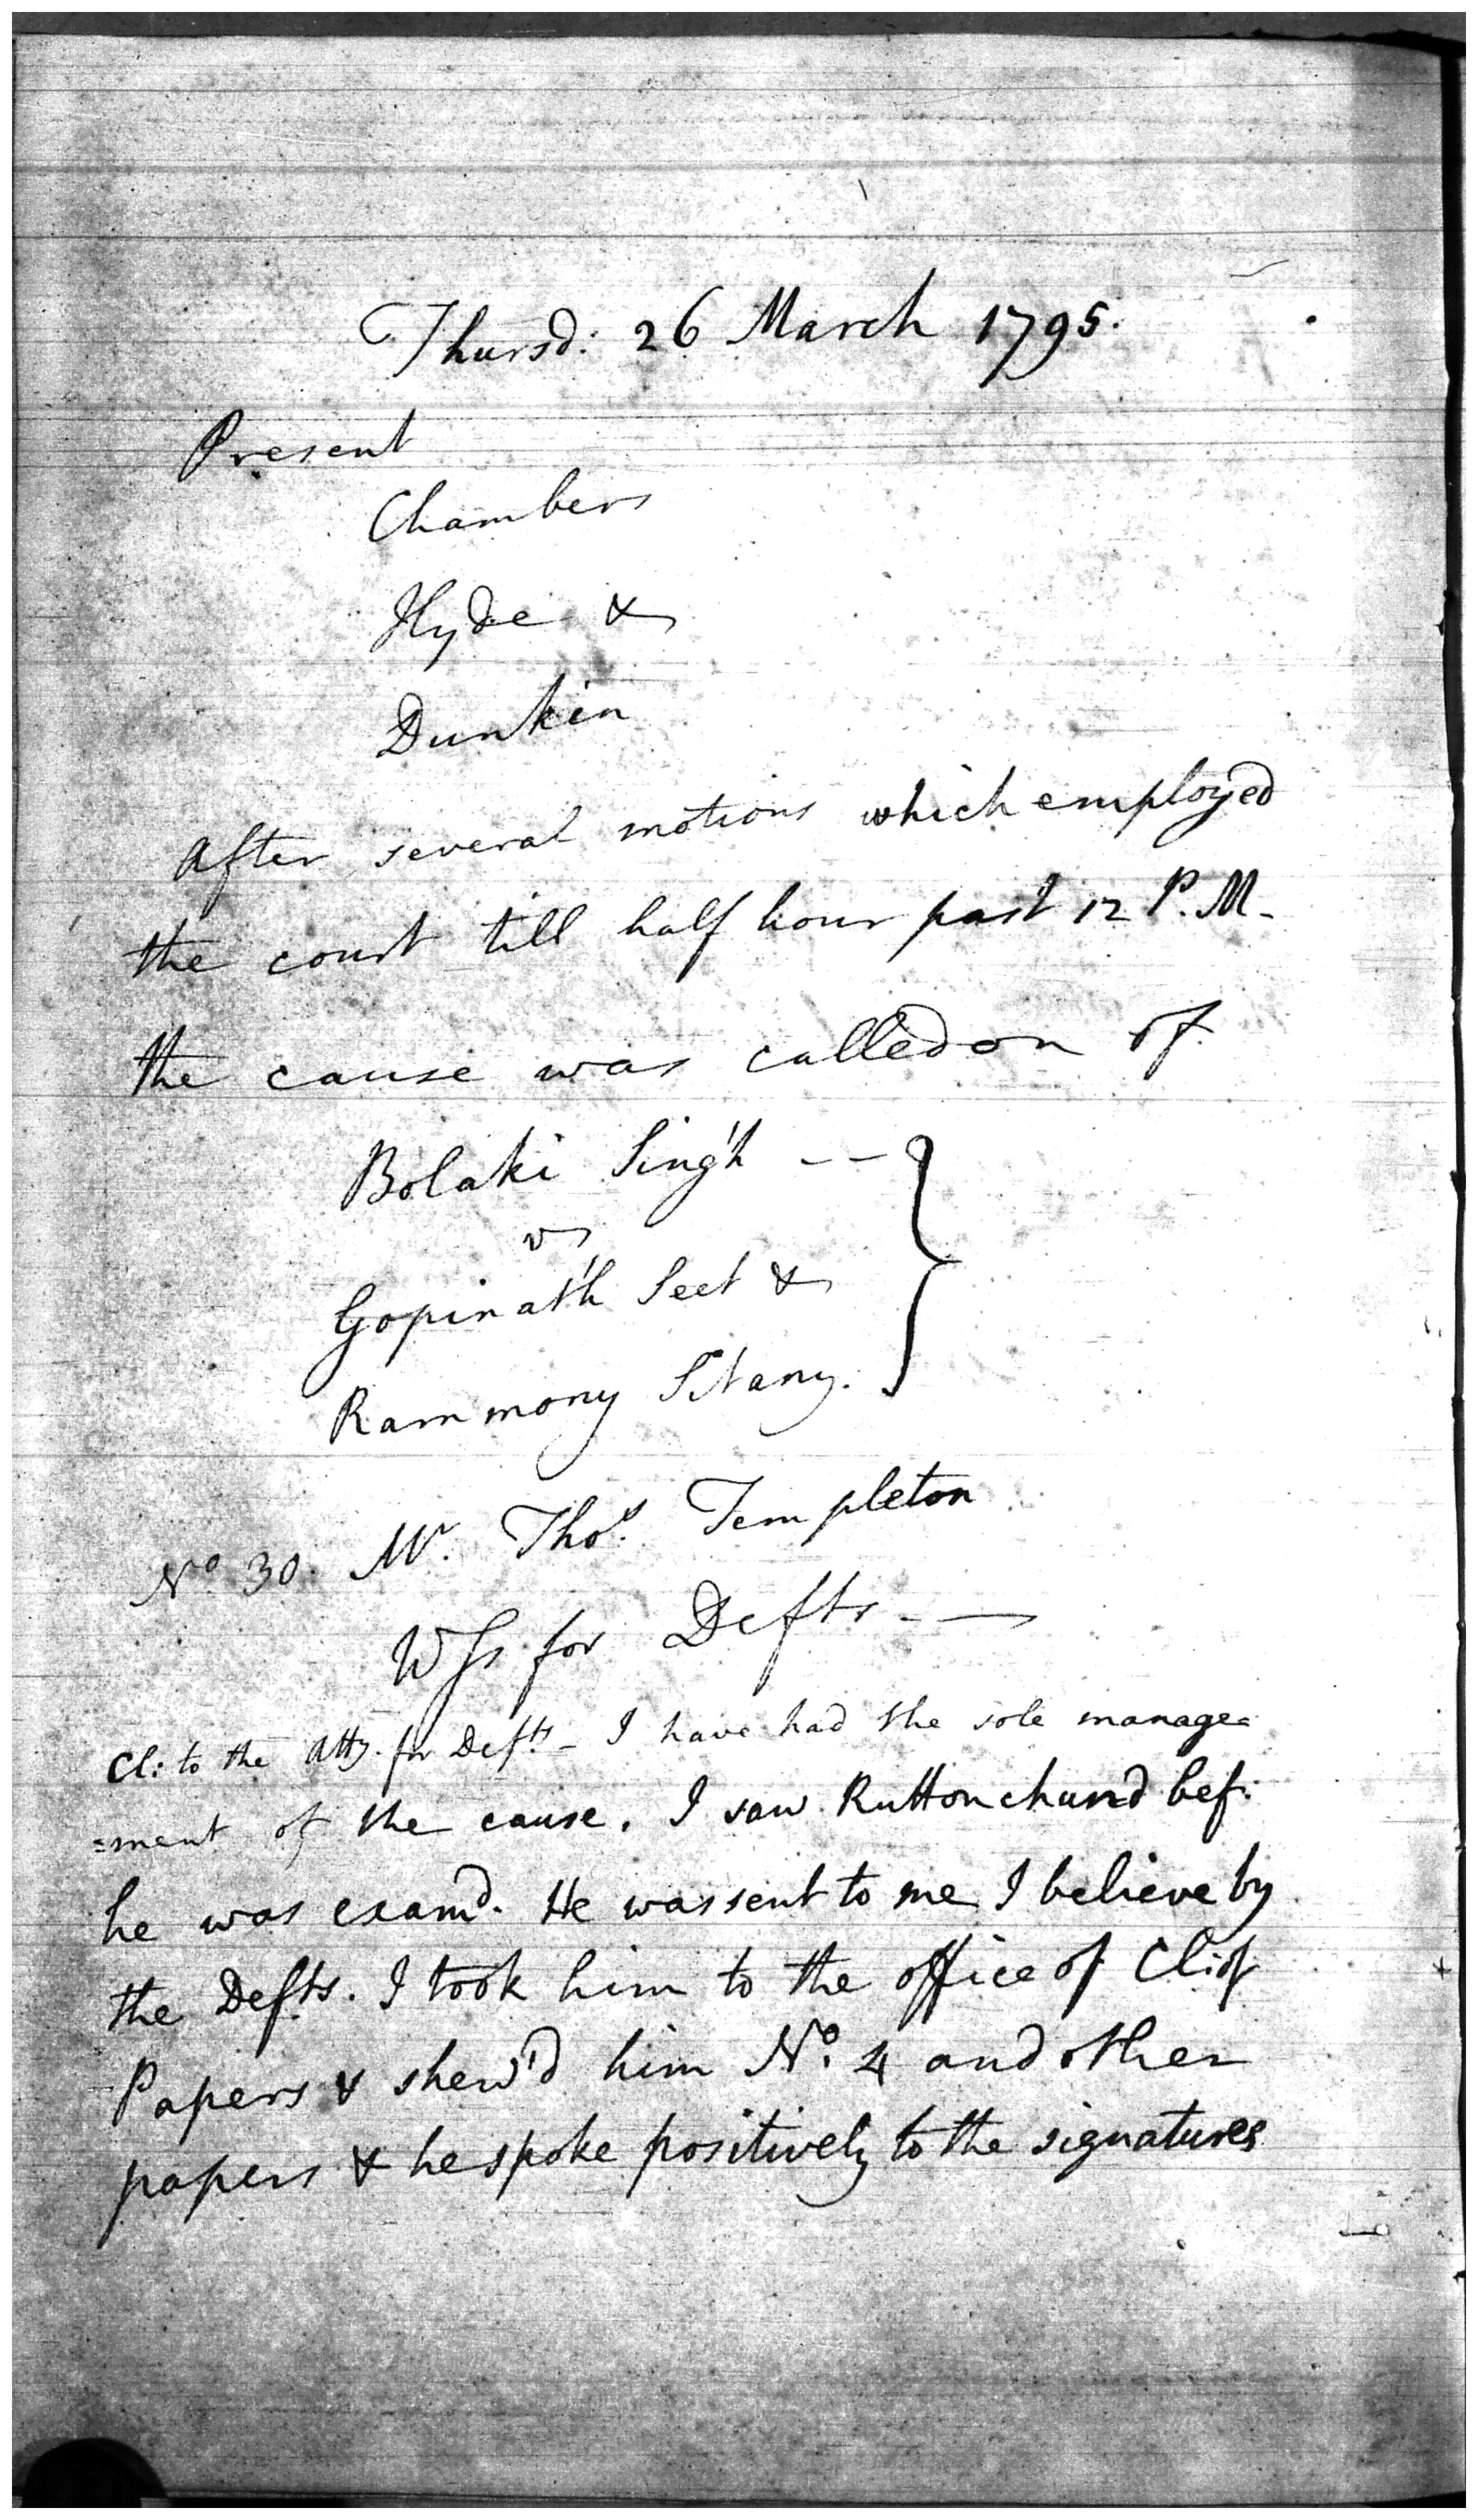 Thursd: 26 March 1795.
Present
Chambers
Hyde &
Dunkin
After several motions which employed
the court till half hour past 12 P.M.
the cause was called on of
Bolaki Sing'h --
vs
Gopinat'h Seet &
Rammony Sitany.
No 30. Mr. Thos. Templeton
Wss for Defts. -
Cl: to the Atty. for Defts - I have had the sole manage=
=ment of the cause. I saw Ruttonchund bef:
he was examd. He was sent to me I believe by
the Defts. I took him to the office of Cl: of
Papers & shew'd him No. 4 and other
papers & he spoke positively to the signatures